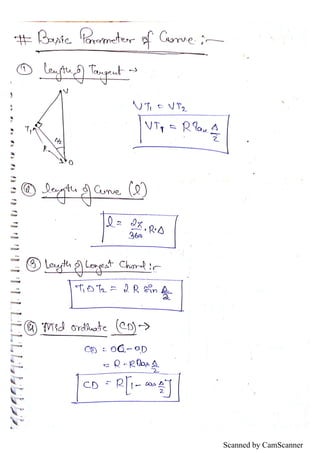 # Basic Parameter of Curve :-
① Length of Tangent →
V
T₁
Δ/2
R
O
VT₁ = VT₂
VT₁ = R Tan Δ/2
② Length of Curve (l)
l = 2π/360 . R . Δ
③ Length of Longest Chord :-
T₁DT₂ = 2 R Sin Δ/2
④ Mid ordinate (CD) →
CD = OC - OD
= R - R Cos Δ/2
CD = R [1 - cos Δ/2]
Scanned by CamScanner